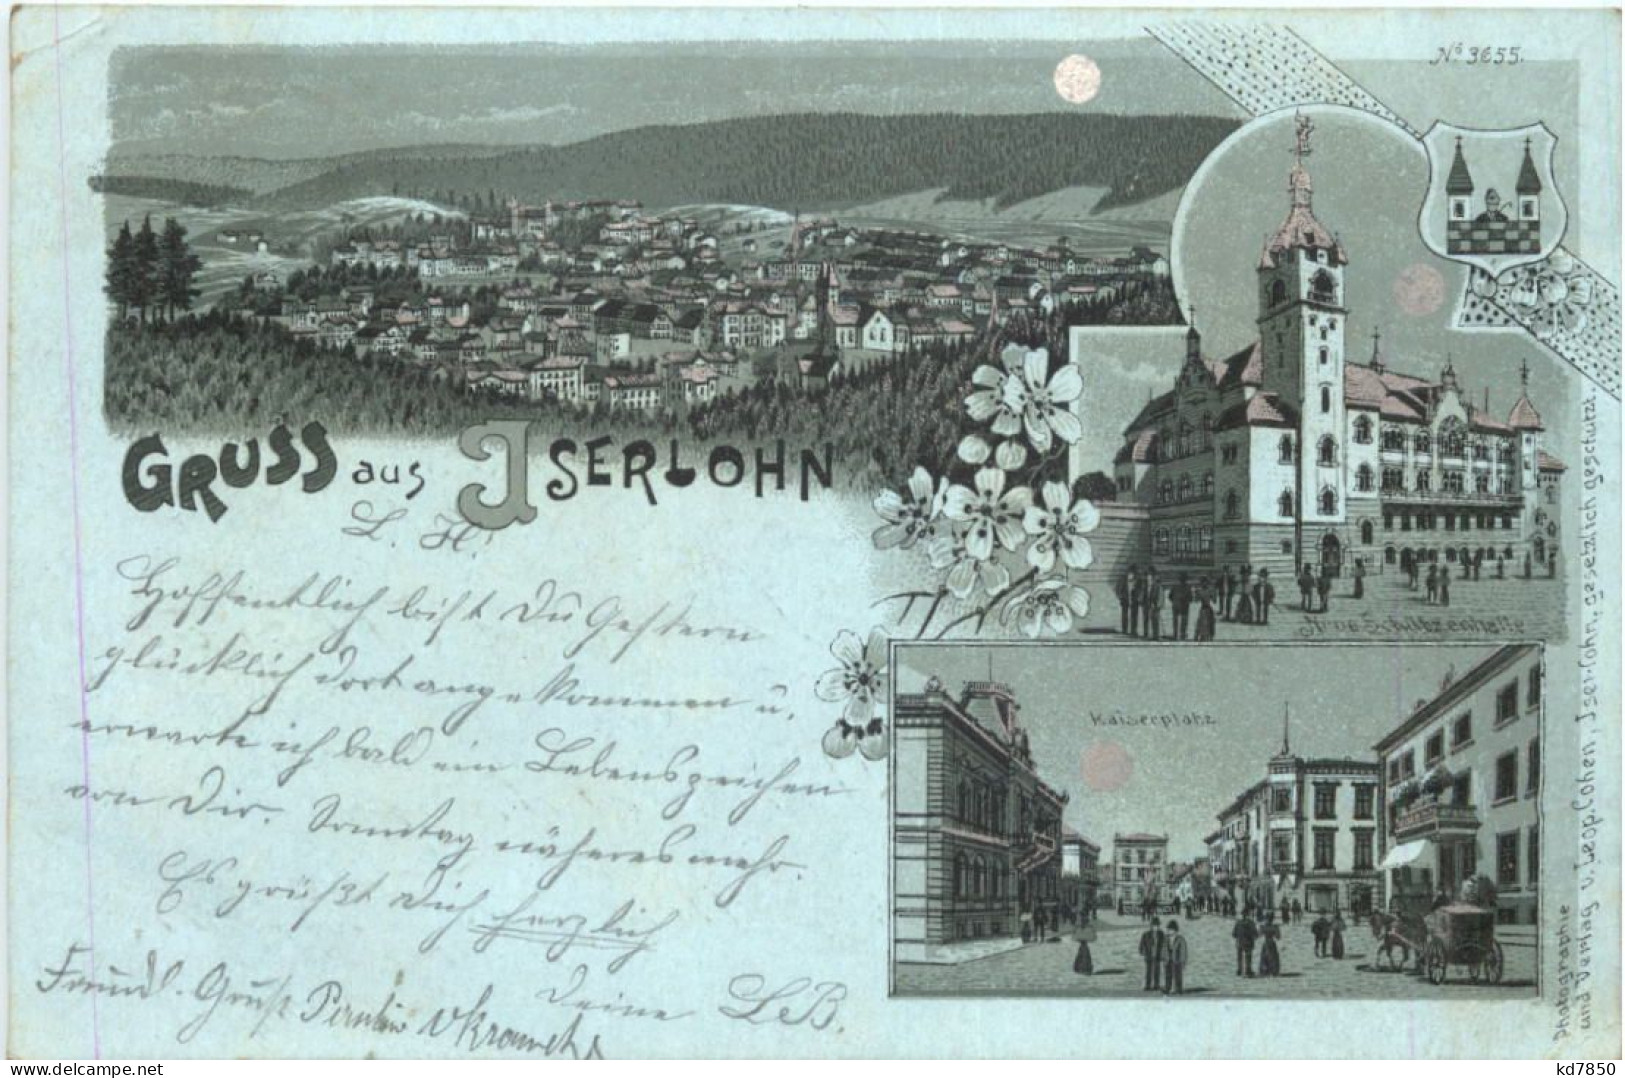 Nº 3655.
GRUSS aus ISERLOHN
Neue Schützenhalle
Kaiserplatz
Photographie
und Verlag v. Leop. Cohen, Iserlohn, gesetzlich geschützt.
L. H.
Hoffentlich bist Du gestern
glücklich dort angekommen u.
erwarte ich bald ein Lebenszeichen
von Dir. Sonntag näheres mehr.
Es grüßt Dich herzlich
Deine
Freundl. Gruß
www.delcampe.net
kd7850